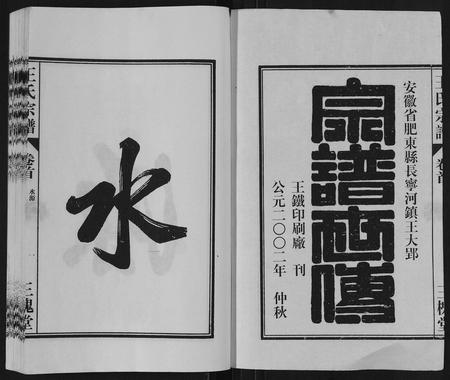 王氏宗譜
卷首
三槐堂
安徽省肥東縣長寧河鎮王大郢
宗譜世傳
王鐵印刷廠 刊
公元二〇〇二年 仲秋
水
王氏宗譜
卷首
水源
三槐堂